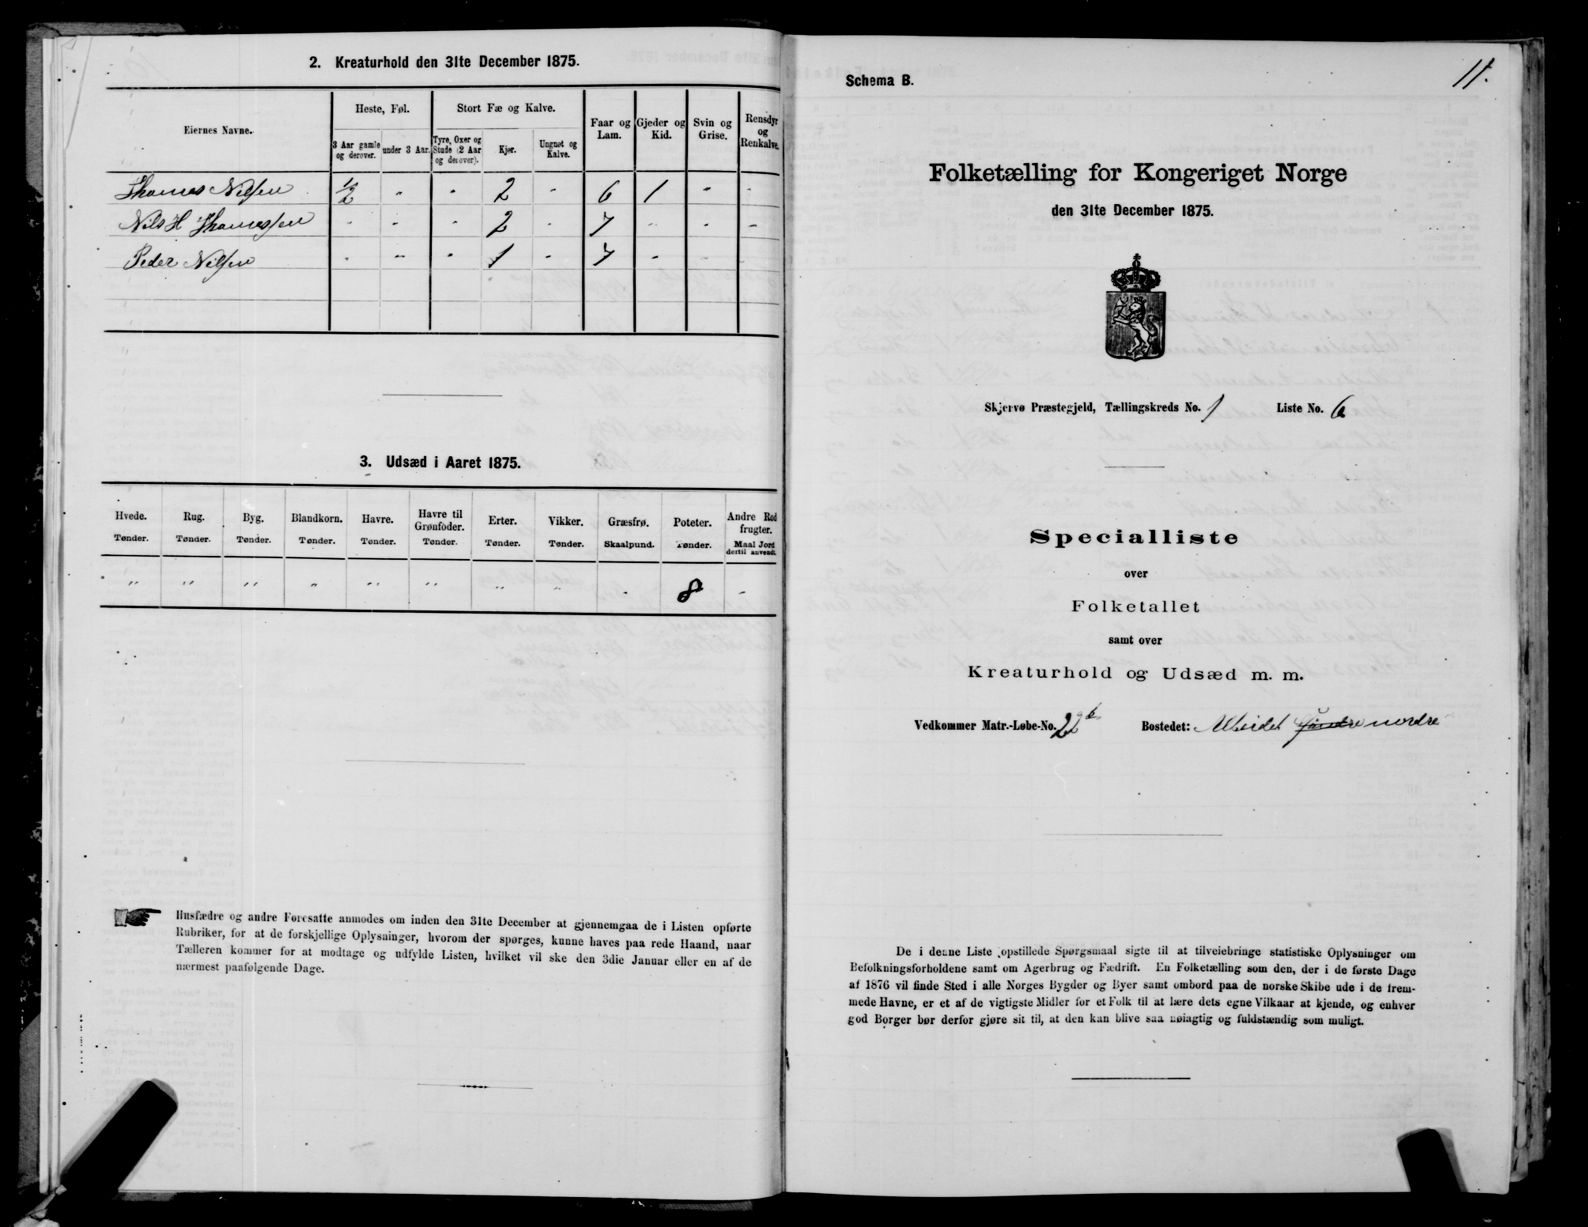 2. Kreaturhold den 31te December 1875.
Eiernes Navne.
Heste, Føl.
Stort Fæ og Kalve.
Faar og Lam.
Gjeder og Kid.
Svin og Grise.
Rensdyr og Renkalve.
3 Aar gamle og derover.
under 3 Aar.
Tyre, Oxer og Stude (2 Aar og derover).
Kjør.
Ungnøt og Kalve.
Thomas Nilsen 1/2 " " 2 " 6 1 " "
Nils H Thomassen " " " 2 " 7 " " "
Peder Nilsen " " " 1 " 7 " " "
3. Udsæd i Aaret 1875.
Hvede. Rug. Byg. Blandkorn. Havre. Havre til Grønfoder. Erter. Vikker. Græsfrø. Poteter. Andre Rodfrugter.
Tønder. Tønder. Tønder. Tønder. Tønder. Tønder. Tønder. Tønder. Skaalpund. Tønder. Maal Jord dertil anvend.
" " " " " " " " " 8 "
Husfædre og andre Foresatte anmodes om inden den 31te December at gjennemgaa de i Listen opførte
Rubriker, for at de forskjellige Oplysninger, hvorom der spørges, kunne haves paa rede Haand, naar
Tælleren kommer for at modtage og udfylde Listen, hvilket vil ske den 3die Januar eller en af de
nærmest paafølgende Dage.
11.
Schema B.
Folketælling for Kongeriget Norge
den 31te December 1875.
Skjervø Præstegjeld, Tællingskreds No. 1 Liste No. 6
Specialliste
over
Folketallet
samt over
Kreaturhold og Udsæd m. m.
Vedkommer Matr.-Løbe-No. 22b Bostedet: Alteidet nordre
De i denne Liste opstillede Spørgsmaal sigte til at tilveiebringe statistiske Oplysninger om
Befolkningsforholdene samt om Agerbrug og Fædrift. En Folketælling som den, der i de første Dage
af 1876 vil finde Sted i alle Norges Bygder og Byer samt ombord paa de norske Skibe ude i de frem-
mede Havne, er et af de vigtigste Midler for et Folk til at lære dets egne Vilkaar at kjende, og enhver
god Borger bør derfor gjøre sit til, at den kan blive saa nøiagtig og fuldstændig som muligt.